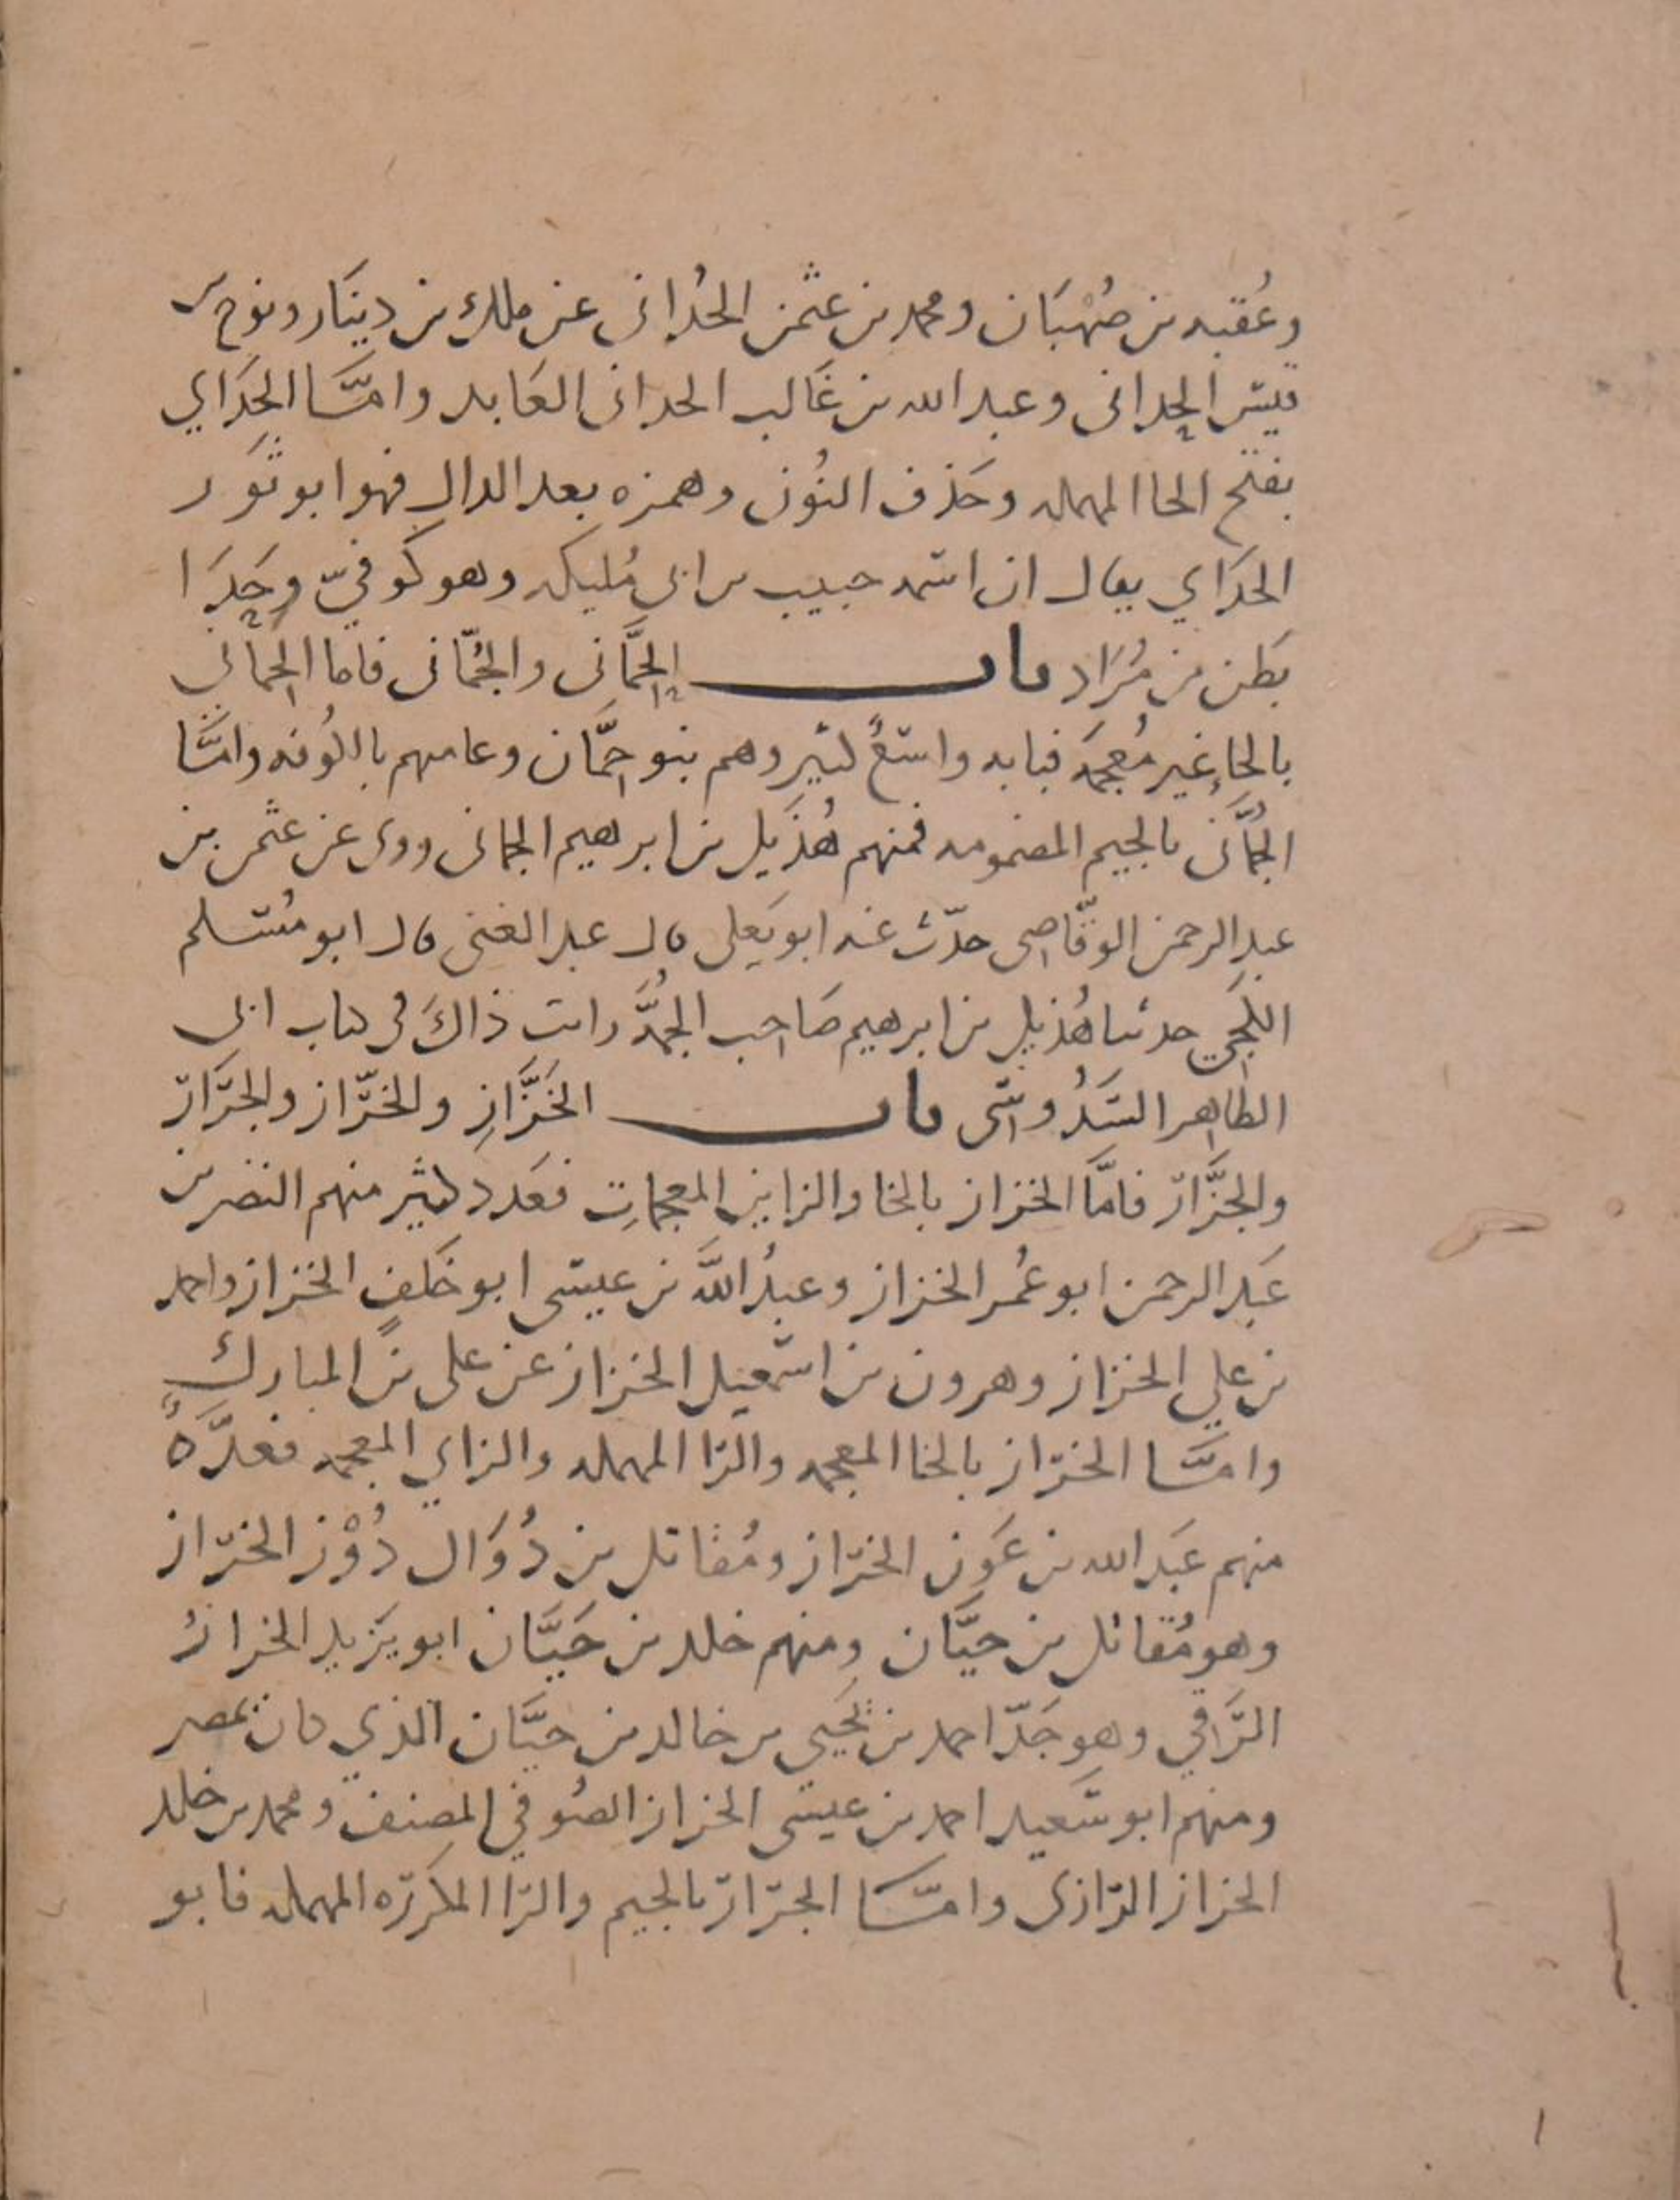 وعُقبه بن صُهْبَان ومحمد بن عثمن الحُدانى عن ملك بن دينَار ونوح بن
قيس الحدانى وعبد الله بن غَالب الحدانى العَابد وامَّا الحَدَاي
بفتح الحا المهمله وحَذف النُون وهمزه بعد الدال فهو ابو ثَور
الحدَاي يقال ان اسمه حبيب بن ابى مُليكه وهو كوفيّ وحَدَا
بَطن من مُرَاد باب الحِمَّانى والجُمّانى فاما الحِمَاني
بالحاءِ غير مُعجَمه فبابه واسعٌ كثير وهم بنو حِمَّان وعامتهم بالكُوفه وامَّا
الجُمَّانى بالجيم المضمومه فمنهم هُذَيل بن ابرهيم الجمانى روى عن عثمن بن
عبد الرحمن الوقّاصى حدّث عنه ابو يَعلى قال عبد الغنى قال ابو مُسلم
الكجى حدثنا هُذيل بن ابرهيم صَاحب الجُمَّه رايت ذاكَ فى كتاب ابى
الطاهر السَدُوسى باب الخَزَّازِ والخرّاز والجرَّار
والجزَّار فامَّا الخزاز بالخا والزايين المعجماتِ فعَدد كثير منهم النضر بن
عَبد الرحمن ابو عُمر الخزاز وعبدُ اللَّه بن عيسى ابو خَلفٍ الخزاز واحمد
بن علي الخزاز وهرون بن اسمعيل الخزاز عن على بن المبارك
وامَّا الخرّاز بالخا المعجمه والرا المهمله والزاي المعجمه فعدَّهٌ
منهم عَبد الله بن عَون الخرّاز ومُقاتل بن دُوَال دُوْز الخرّاز
وهو مُقاتل بن حيَّان ومنهم خلد بن حَيَّان ابو يَزيد الخرازُ
الرَّقي وهو جَدّ احمد بن يَحيى بن خالد بن حيَّان الذي كان بمصر
ومنهم ابو سَعيد احمد بن عيسى الخراز الصُوفي المصنف ومحمد بن خلد
الخراز الرّازى وامَّا الجرّار بالجيم والرّا المكررّه المهمله فابو